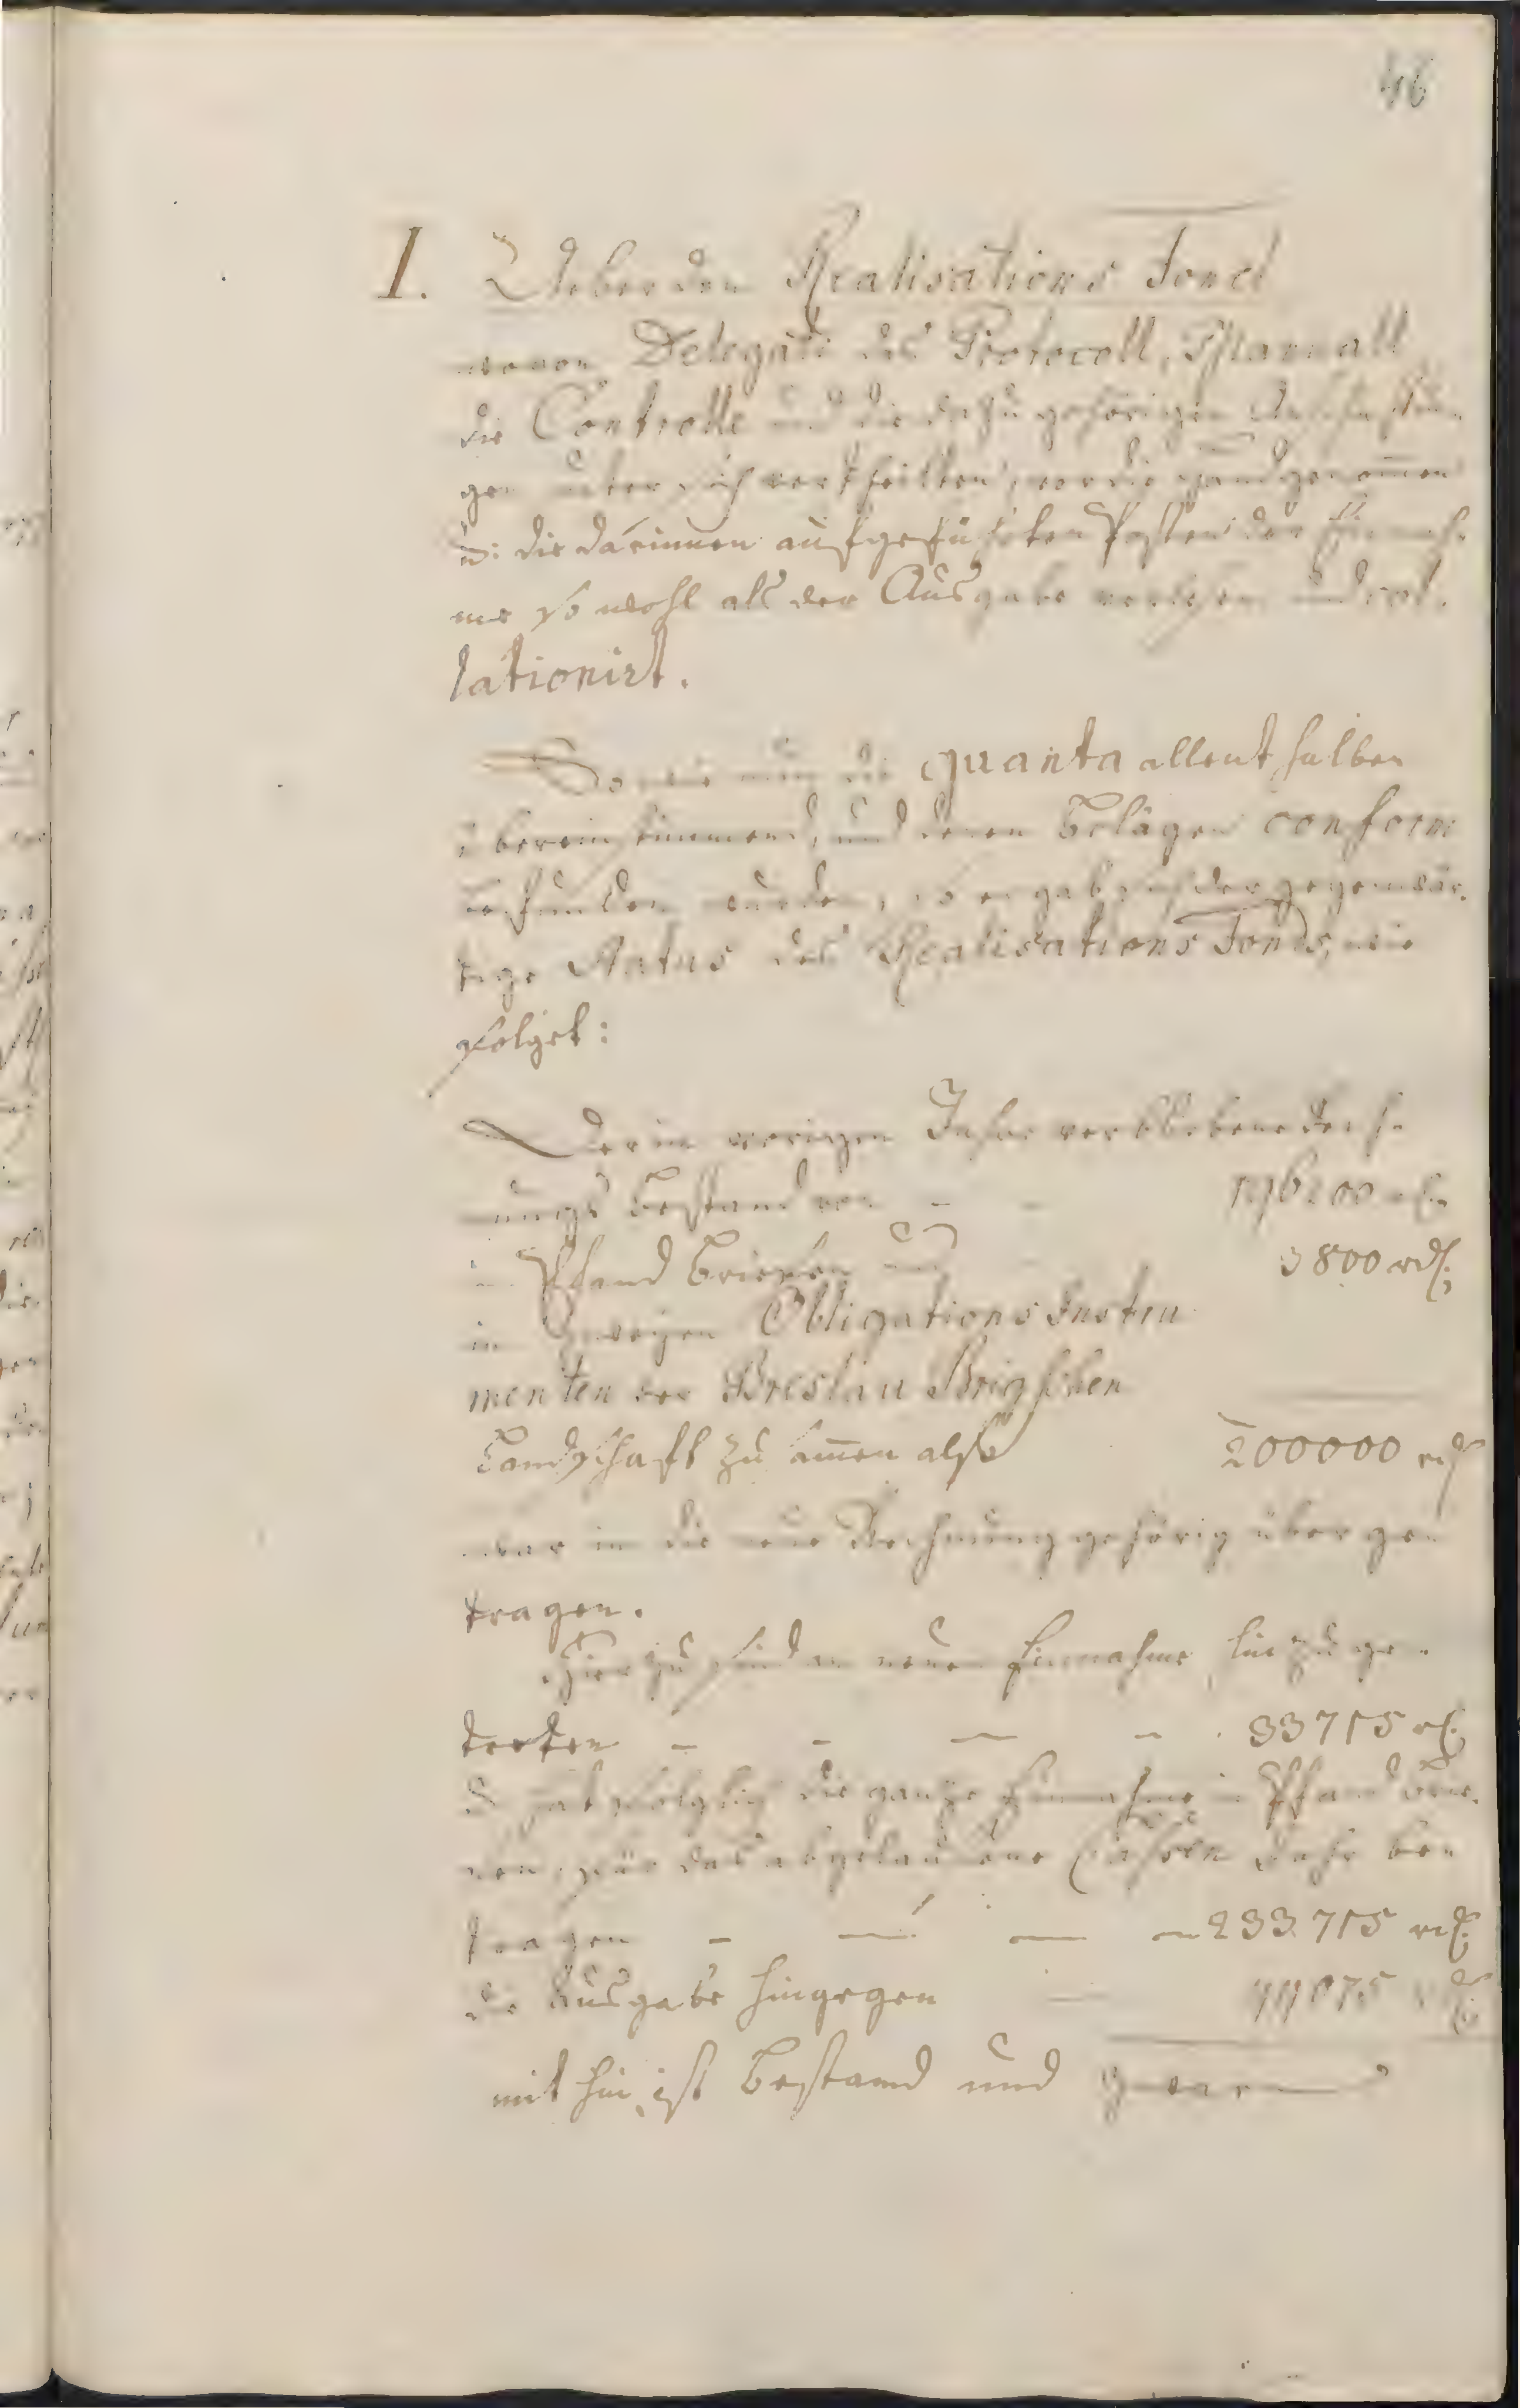 46
I. Ueber den Realisations Fond
wovon Delegati das Protocoll, Manuall
die Controlle und die dazu gehörigen
gen unter sich vertheilten, vor die Hand genom̄en
u: die darinnen aufgeführten Posten der Einnah-
me so wohl als der Ausgabe verlesen und col-
lationirt.
So wie nun die quanta allenthalben
übereinstimmend, und denen Belägen conform
befunden wurden, so ergab sich der gegenwär-
tige Status des Realisations Fonds, wie
folget:
Der im vorigen Jahre verbliebene Rech-
nungs Bestand von - - 196200 rtl.
in Pfand Briefen und 3800 rtl.
in zweyen Obligations Instru
menten der Breslau Briegschen
Landschaft zusam̄en also 200000 rtl
war in die neue Rechnung gehörig über ge-
tragen.
Hierzu sind an neuer Einnahme hinzu ge-
treten - - - - 33715 rtl.
u hat folglich die ganze Einnahme in Pfand Brie-
fen, für das abgelaufene Cassen Jahr be-
tragen - - - - 233715 rtl.
die Ausgabe hingegen rtl.
mithin ist Bestand und zwar